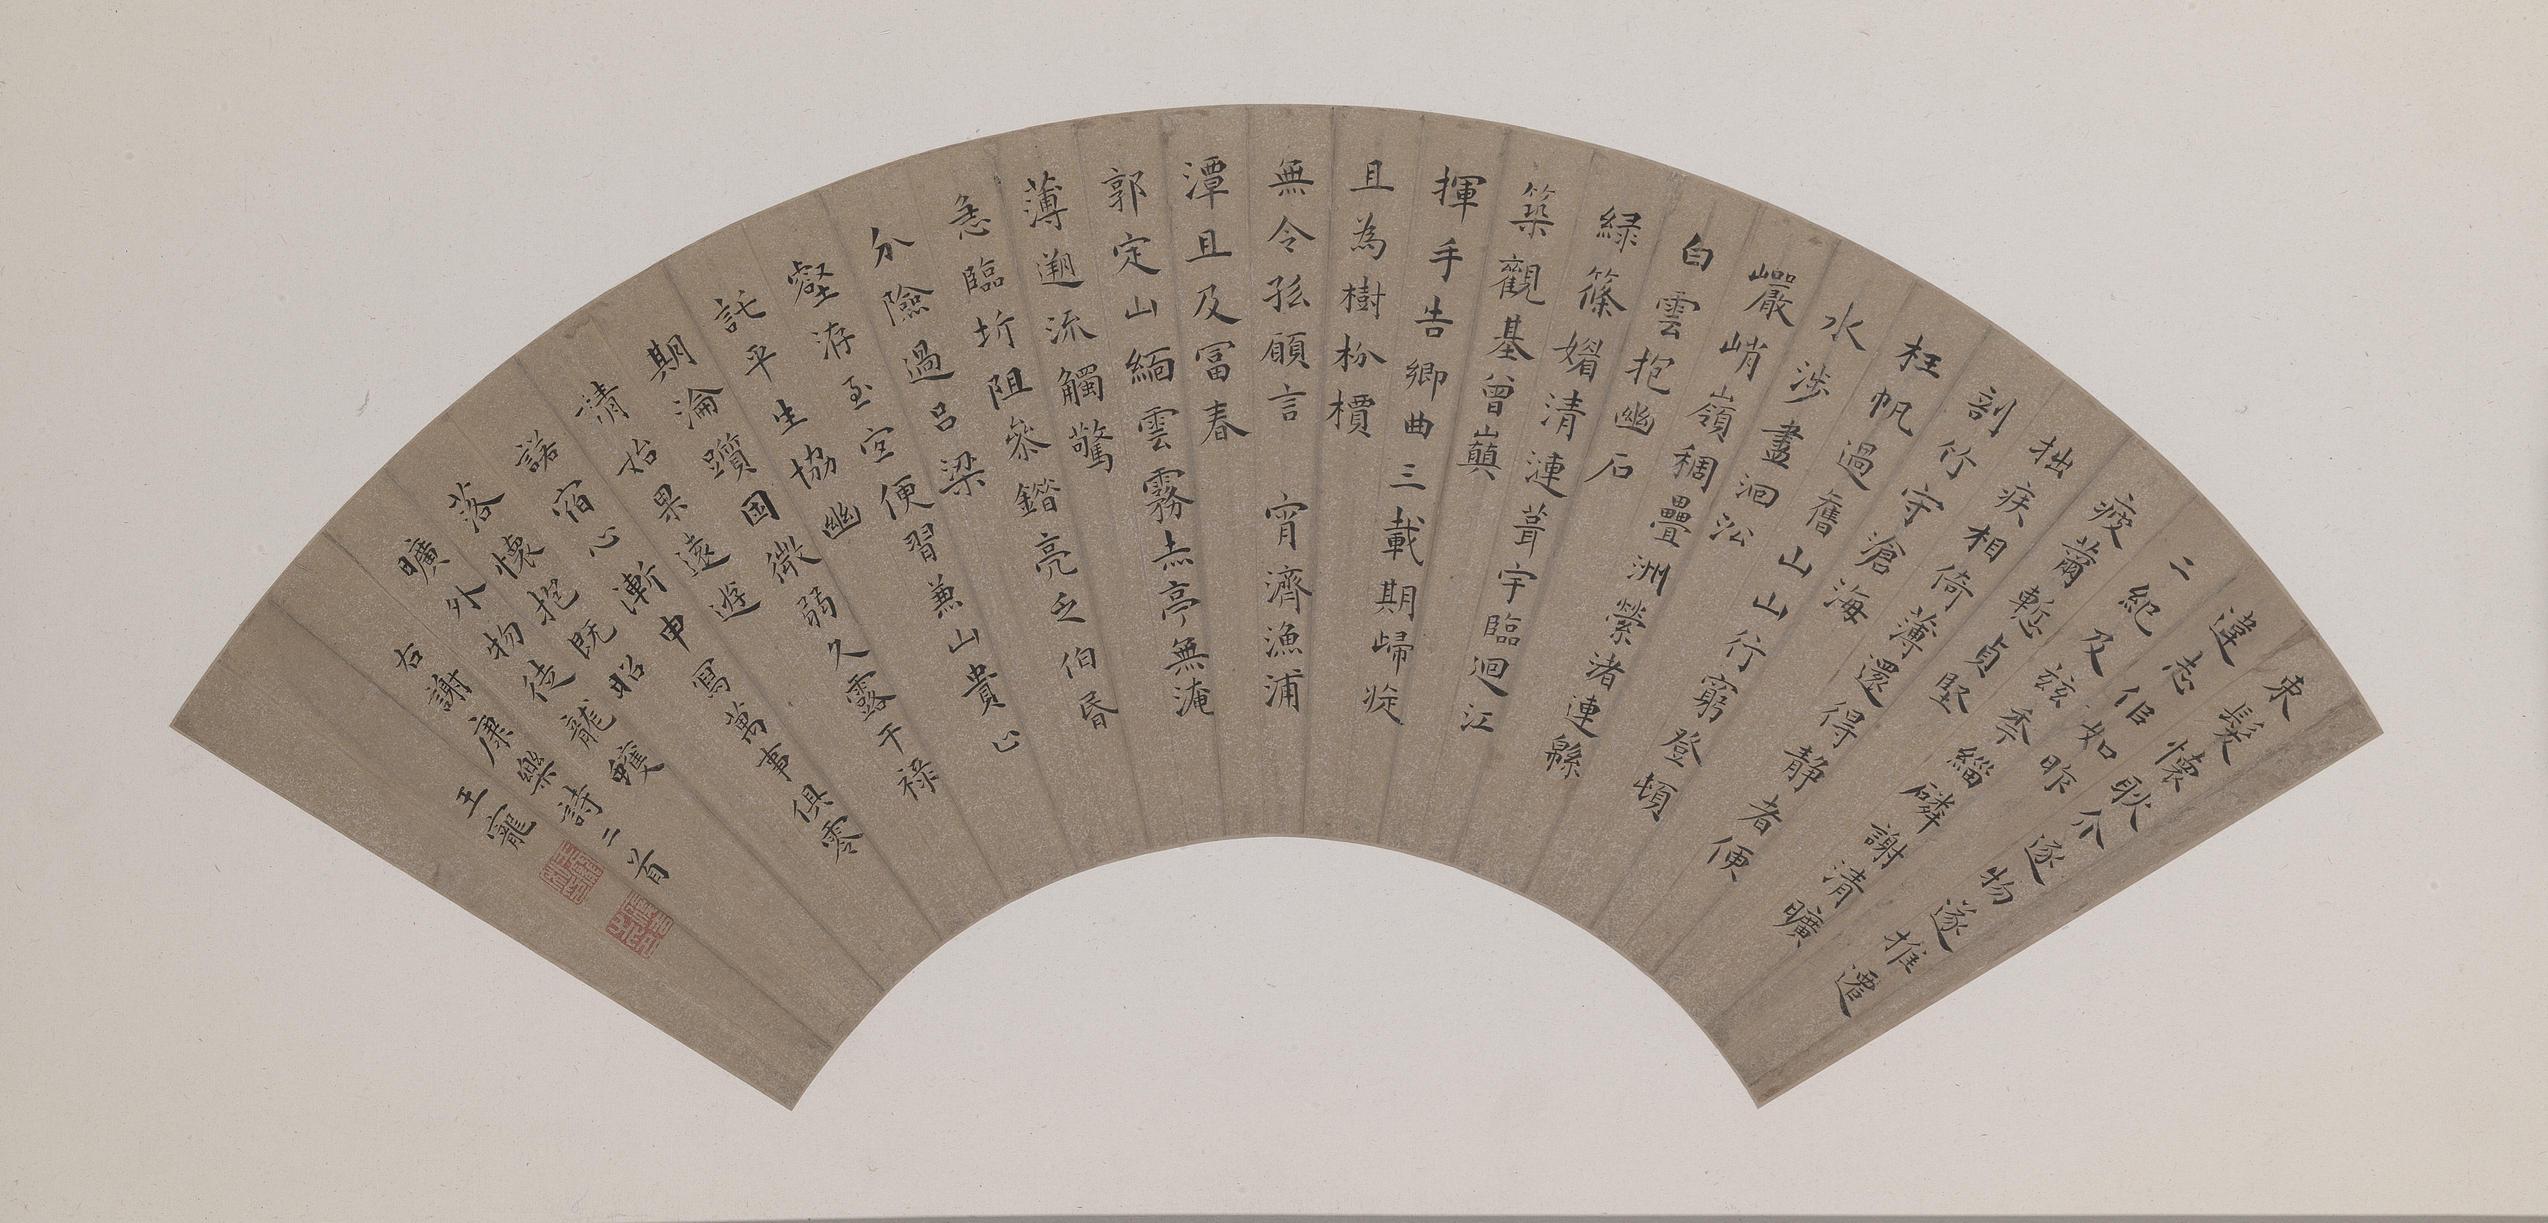 束髮懷耿介逐物遂推遷
違志佀如昨
二紀及茲秊緇磷謝清曠
疲薾慙貞堅
拙疾相倚薄還得靜者便
剖竹守滄海
枉帆過舊山山行窮登頓
水涉盡洄㳂
巖峭嶺稠疊洲縈渚連緜
白雲抱幽石
綠篠媚清漣葺宇臨迴江
築觀基曾巔
揮手告鄉曲三載期歸旋
且為樹枌檟
無令孤願言 宵濟漁浦
潭且及富春
郭定山緬雲霧赤亭無淹
薄遡流觸驚
急臨圻阻參錯亮乏伯昬
分險過呂梁
壑洊至宜便習兼山貴止
託平生協幽
期淪躓困微弱久露干祿
請始果遠遊
諾宿心漸申寫萬事俱零
落懷抱既昭
曠外物徒龍蠖
右謝康樂詩二首
王寵